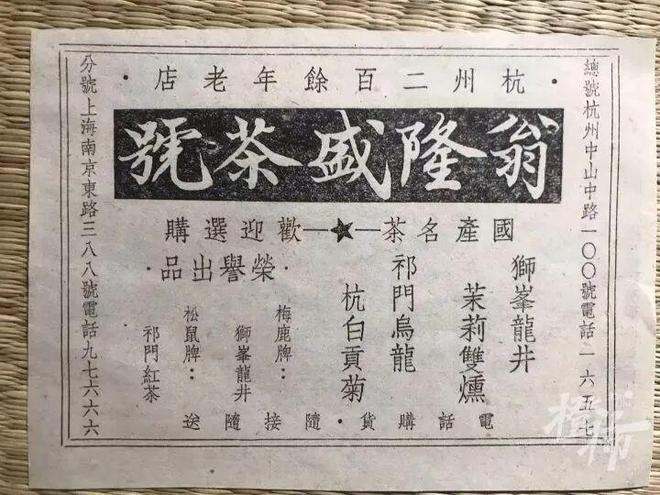 總號杭州中山中路一〇〇號電話一六五七
·杭州二百餘年老店·
翁隆盛茶號
國產名茶—★—歡迎選購
獅峯龍井
茉莉雙燻
祁門烏龍
杭白貢菊
·榮譽出品·
梅鹿牌：
獅峯龍井
松鼠牌：
祁門紅茶
電話購貨·隨接隨送
分號上海南京東路三八八號電話九七六六六
橙柿